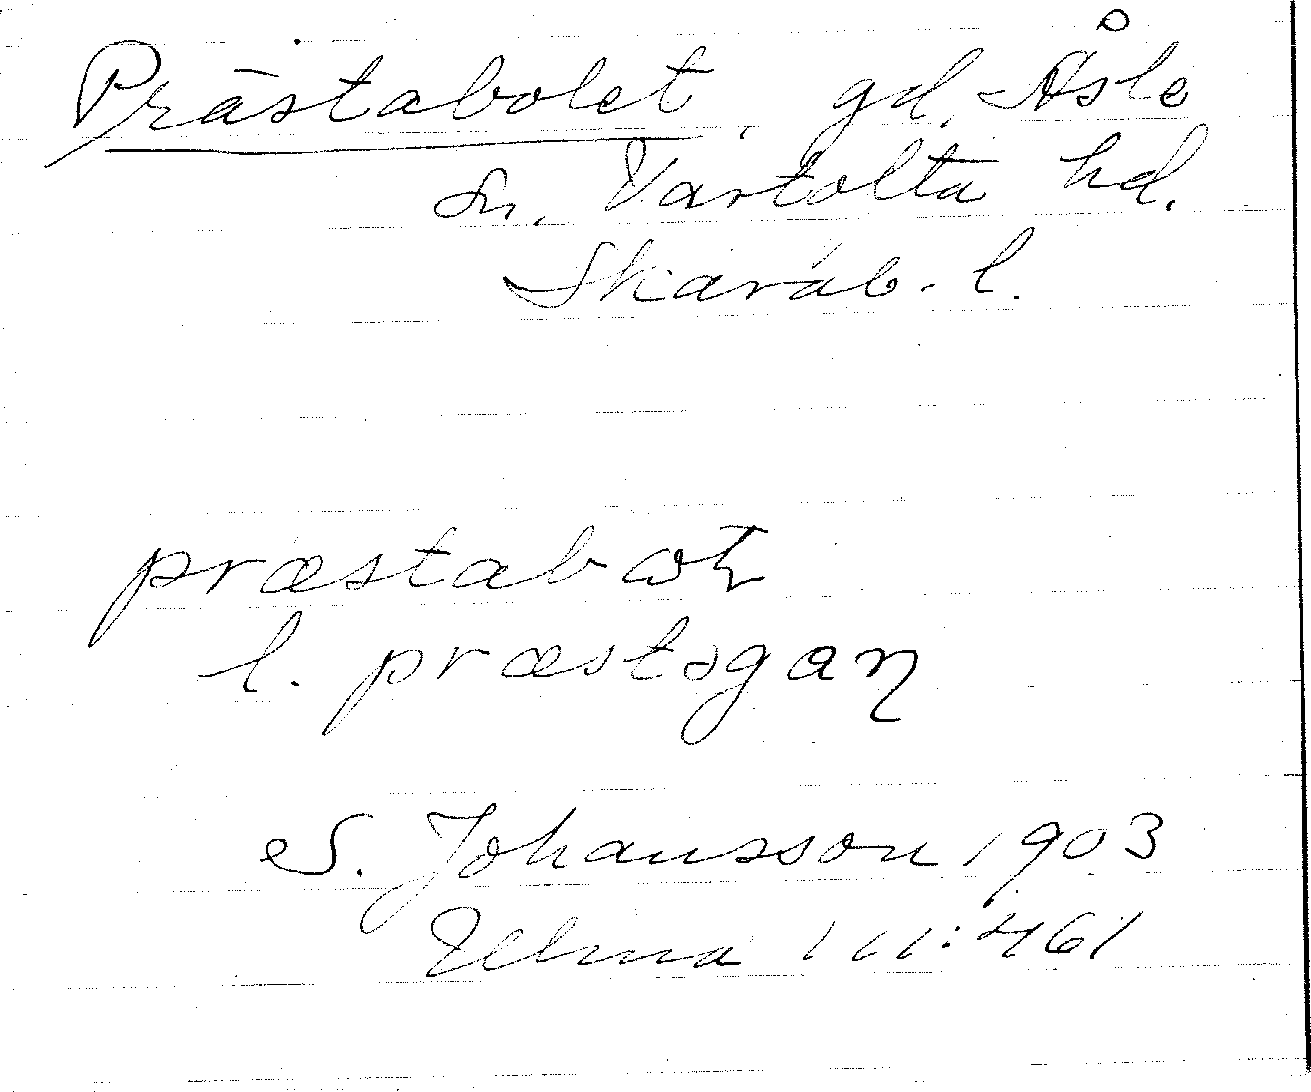 Prästabolet, gd, Åsle
sn. Vartofta hd.
Skarab. l.
præstabωtɂ
l. præstəgaɳ
S. Johansson 1903
Ulma 111:461